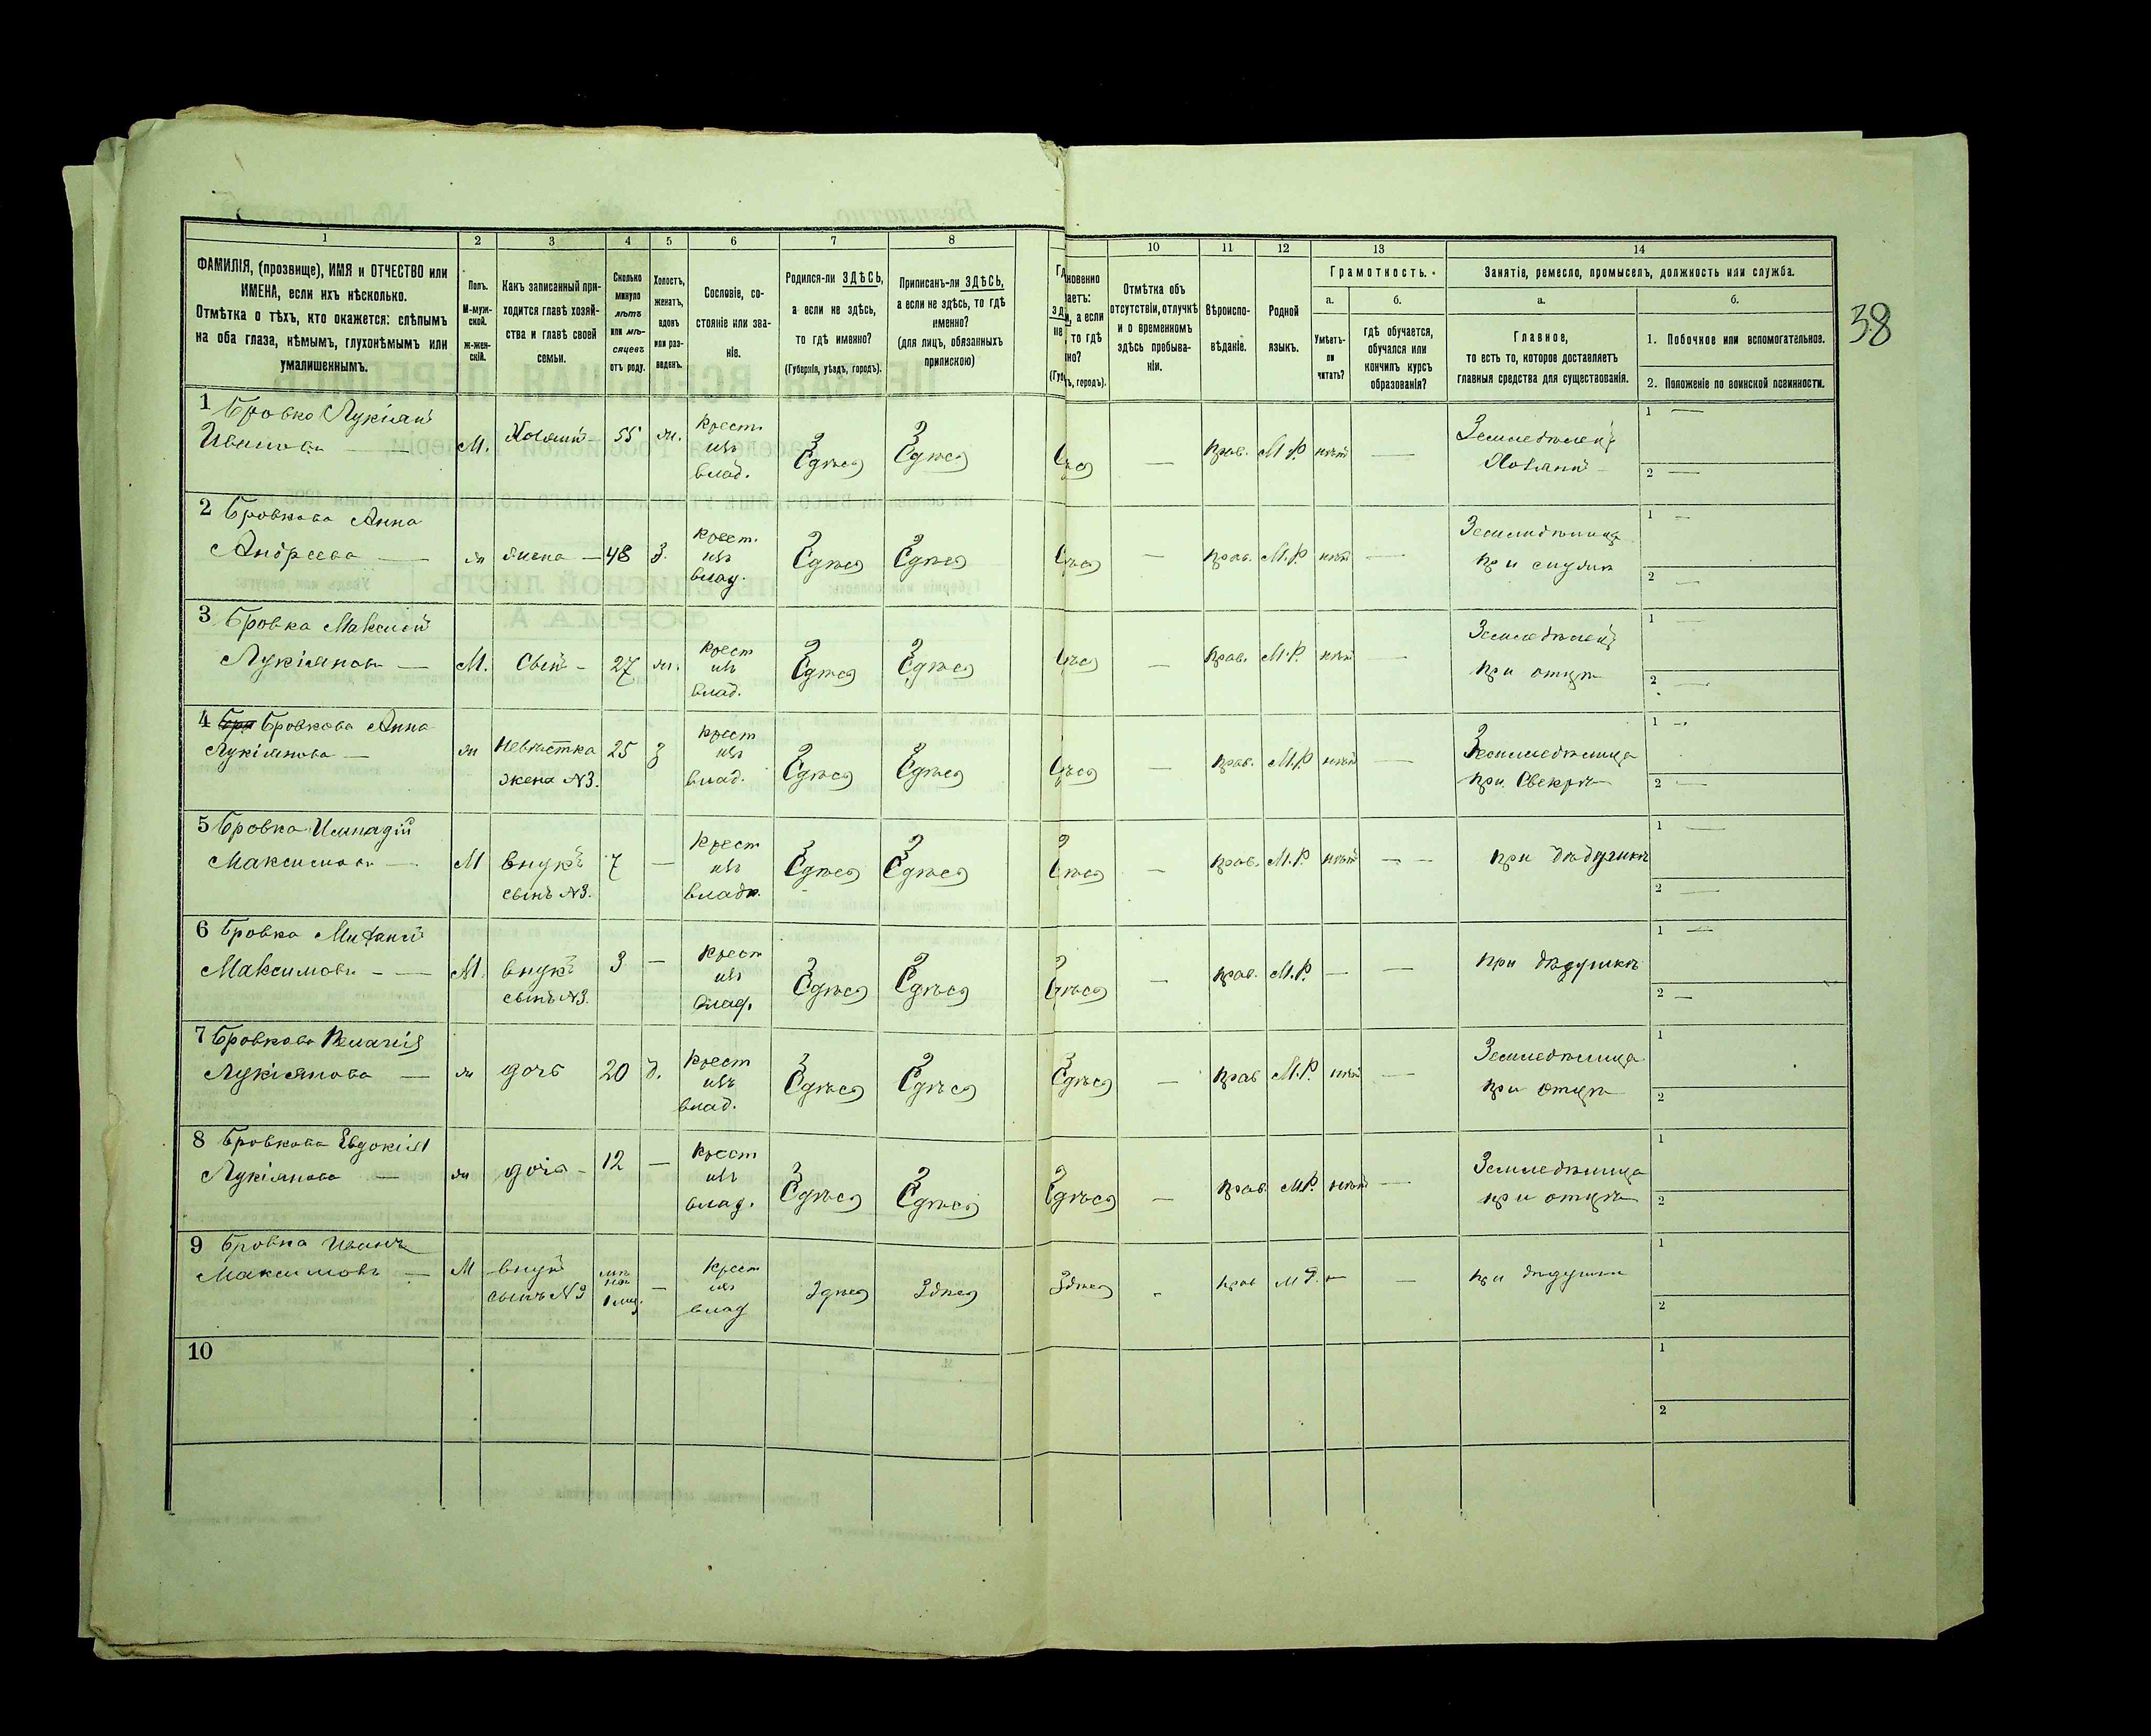 38
1 2 3 4 5 6 7 8 10 11 12 13 14
ФАМИЛІЯ, (прозвище), ИМЯ и ОТЧЕСТВО или
ИМЕНА, если ихъ нѣсколько.
Отмѣтка о тѣхъ, кто окажется: слѣпымъ
на оба глаза, нѣмымъ, глухонѣмымъ или
умалишеннымъ.
Полъ.
М-муж-
ской.
ж-жен-
скій.
Какъ записанный при-
ходится главѣ хозяй-
ства и главѣ своей
семьи.
Сколько
минуло
лѣтъ
или мѣ-
сяцевъ
отъ роду.
Холостъ,
женатъ,
вдовъ
или раз-
веденъ.
Сословіе, со-
стояніе или зва-
ніе.
Родился-ли ЗДѢСЬ,
а если не здѣсь,
то гдѣ именно?
(Губернія, уѣздъ, городъ).
Приписанъ-ли ЗДѢСЬ,
а если не здѣсь, то гдѣ
именно?
(для лицъ, обязанныхъ
припискою)
Отмѣтка объ
отсутствіи, отлучкѣ
и о временномъ
здѣсь пребыва-
ніи.
Вѣроиспо-
вѣданіе.
Родной
языкъ.
Грамотность.
а.
Умѣетъ-
ли
читать?
б.
гдѣ обучается,
обучался или
кончилъ курсъ
образованія?
Занятіе, ремесло, промыселъ, должность или служба.
а.
Главное,
то есть то, которое доставляетъ
главныя средства для существованія.
б.
1. Побочное или вспомогательное.
2. Положеніе по воинской повинности.
1 Бровко Лукіянъ
Ивановъ — М. Хозяинъ 55 ж. крест. изъ влад. Здѣсь Здѣсь — прав. М.Р. нѣтъ — Земледѣлецъ
Хозяинъ
1 —
2 —
2 Бровкова Анна
Андреева — ж жена — 48 з. крест. изъ влад. Здѣсь Здѣсь — прав. М.Р. нѣтъ —
при мужѣ
1 —
2 —
3 Бровка Максимъ
Лукіяновъ — М. Сынъ — 27 ж. крест изъ влад. Здѣсь Здѣсь — прав. М.Р. нѣтъ — Земледѣлецъ
при отцѣ
1 —
2 —
4 Бровкова Анна
Лукіянова — ж невѣстка 25 з крест изъ влад. Здѣсь Здѣсь — прав. М.Р. нѣтъ — Земледѣлица
жена №3. при Свекрѣ
1 —
2 —
5 Бровка
Максимовъ — М внукъ 7 — крест изъ влад. Здѣсь Здѣсь — прав. М.Р. нѣтъ — — при дѣдушкѣ
сынъ №3.
1 —
2 —
6 Бровка
Максимовъ — — М. внукъ 3 — крест изъ влад. Здѣсь Здѣсь Здѣсь — прав. М.Р. — — при дѣдушкѣ
сынъ №3.
1 —
2 —
7 Бровкова
Лукіянова — ж дочь 20 д. крест изъ влад. Здѣсь Здѣсь Здѣсь — прав М.Р. нѣтъ — Земледѣлица
при отцѣ
1
2
8 Бровкова Евдокія
Лукіянова — ж дочь — 12 — крест изъ влад. Здѣсь Здѣсь Здѣсь — прав. М.Р. нѣтъ — Земледѣлица
при отцѣ
1
2
9 Бровка Иванъ
Максимовъ — М внукъ — крест изъ влад Здѣсь Здѣсь Здѣсь — прав М.Р. — — при дѣдушкѣ
сынъ №3
1
2
10
1
2